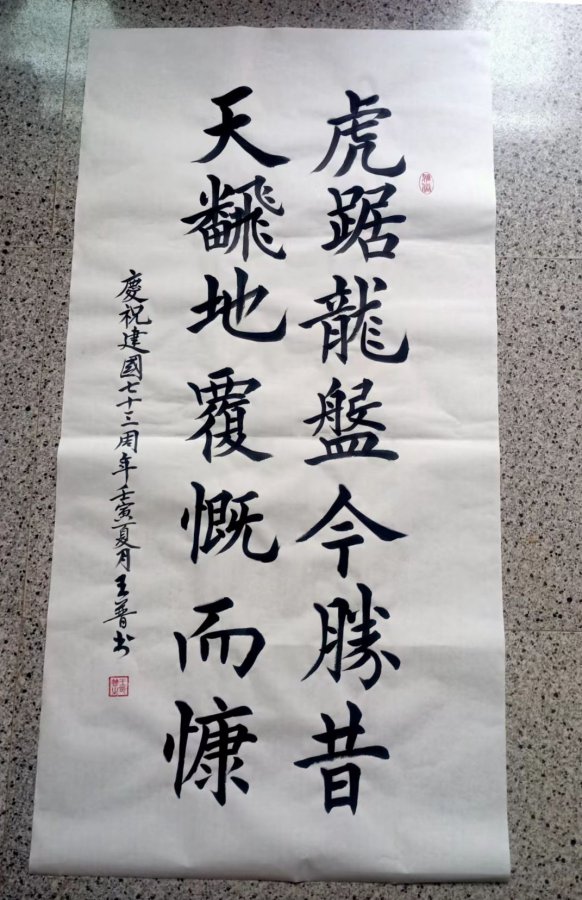 虎踞龍盤今勝昔
天飜地覆慨而慷
慶祝建國七十三周年壬寅夏月王普书